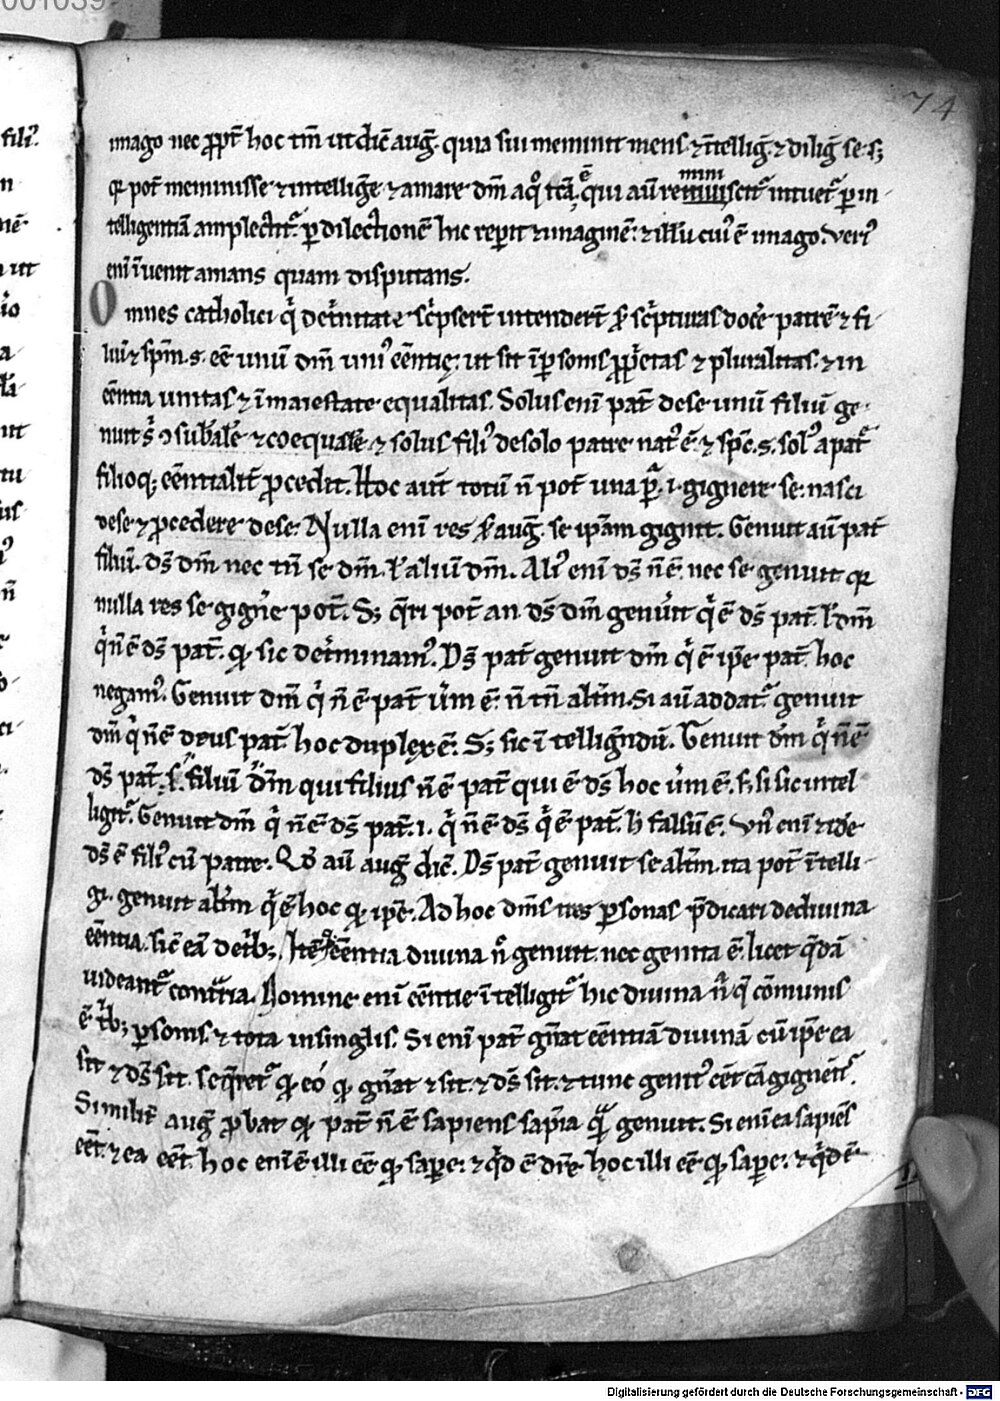 001039
74
imago nec ꝓpt̄ hoc tm̄ ut dic̄ auḡ. quia sui meminit mens. ⁊ īntelliḡ. ⁊ diliḡ se. sꝫ
qꝛ pot̄ meminisse ⁊ intelliḡe ⁊ amare dm̄ a qͦ fc̄a ē, qui aū reminiscit᷑ intuet᷑ ꝑ in
telligentiā amplectit᷑ ꝑ dilectionē hic reperit ⁊ imaginē: ⁊ illū cuiꝰ ē imago. Veriꝰ
eni īuenit amans quam disputans.
Omnes catholici qͥ de t͛nitate sc͛pserūt intenderūt ẜ sc͛pturas doce͛ patrē ⁊ fi
liū ⁊ spm̄. s. eē unū dm̄ uniꝰ eēntię: ut sit ī ꝑsonis ꝓp͛etas ⁊ pluralitas. ⁊ in
eēntia unitas ⁊ ī maiestate equalitas. Solus eni pat̄ de se unū filiū ge
nuit s̄ ꝯsub̄alē ⁊ coequalē. ⁊ solus filiꝰ de solo patre natꝰ ē. ⁊ spc̄. s. solꝰ a pat͛
filioqꝫ eēntialit̄ ꝓcedit. Hoc aut̄ totū n̄ pot̄ una ꝑ̄. i. gignere se. nasci
de se ⁊ ꝓcedere de se. Nulla eni res ẜ auḡ. se ip̄am gignit. Genuit aū pat̄
filiū. ds̄ dm̄ nec tn̄ se dm̄. ł aliū dm̄. Aliꝰ eni ds̄ n̄ ē. nec se genuit qꝛ
nulla res se gign͛e pot̄. Sꝫ q̄ri pot̄ an ds̄ dm̄ genuit qͥ ē ds̄ pat̄. ł dm̄
qͥ n̄ ē ds̄ pat̄. qđ sic det͛minamꝰ. Ds̄ pat̄ genuit dm̄ qͥ ē ip̄e pat̄. hoc
negamꝰ. Genuit dm̄ qͥ n̄ ē pat̄ ūm ē. n̄ tn̄ alt͛m. Si aū addat᷑ genuit
dm̄ qͥ n̄ ē deus pat̄ hoc duplex ē. Sꝫ sic ītelliḡndū. Genuit dm̄ qͥ n̄ ē
ds̄ pat̄. s. filiū dm̄ qui filius n̄ ē pat̄ qui ē ds̄ hoc ūm ē. si sic intel
ligit᷑. Genuit dm̄ qͥ n̄ ē ds̄ pat̄. i. qͥ n̄ ē ds̄ qͥ ē pat̄. h̄ falsū ē. Vnꝰ eni ⁊ idē
ds̄ ē filiꝰ cū patre. Qđ aū auḡ dic̄. Ds̄ pat̄ genuit se alt͛m. ita pot̄ ītelli
gi. genuit alt͛m qͥ ē hoc qđ ip̄e. Ad hoc dm̄s tres ꝑsonas p̄dicari de diuina
eēntia. sic̄ eā de t͛bꝫ. Itē eēntia diuina nͦ genuit. nec genita ē. licet q̄dā
uideant᷑ cont͛ria. Nomine eni eēntie ītelligit᷑ hic diuina n̄r̄a q̄ cōmunis
ē t͛bꝫ ꝑsonis. ⁊ tota in singlis. Si eni pat̄ gn̄at eēntiā diuinā cū ip̄e ea
sit ⁊ ds̄ sit. seq̄ret᷑ qđ eo qđ gn̄at ⁊ sit. ⁊ ds̄ sit. ⁊ tunc genitꝰ eēt cā gignētꝭ.
Similit͛ auḡ ꝓbat qđ pat̄ n̄ ē sapiens sapīa quā genuit. Si eni ea sapiēs
eēt. ⁊ ea eēt. hoc eni ē illi eē qđ saꝑe. ⁊ qͥd ē dic͛e. hoc illi eē qđ saꝑe. ⁊ qͥd ē
Digitalisierung gefördert durch die Deutsche Forschungsgemeinschaft - DFG